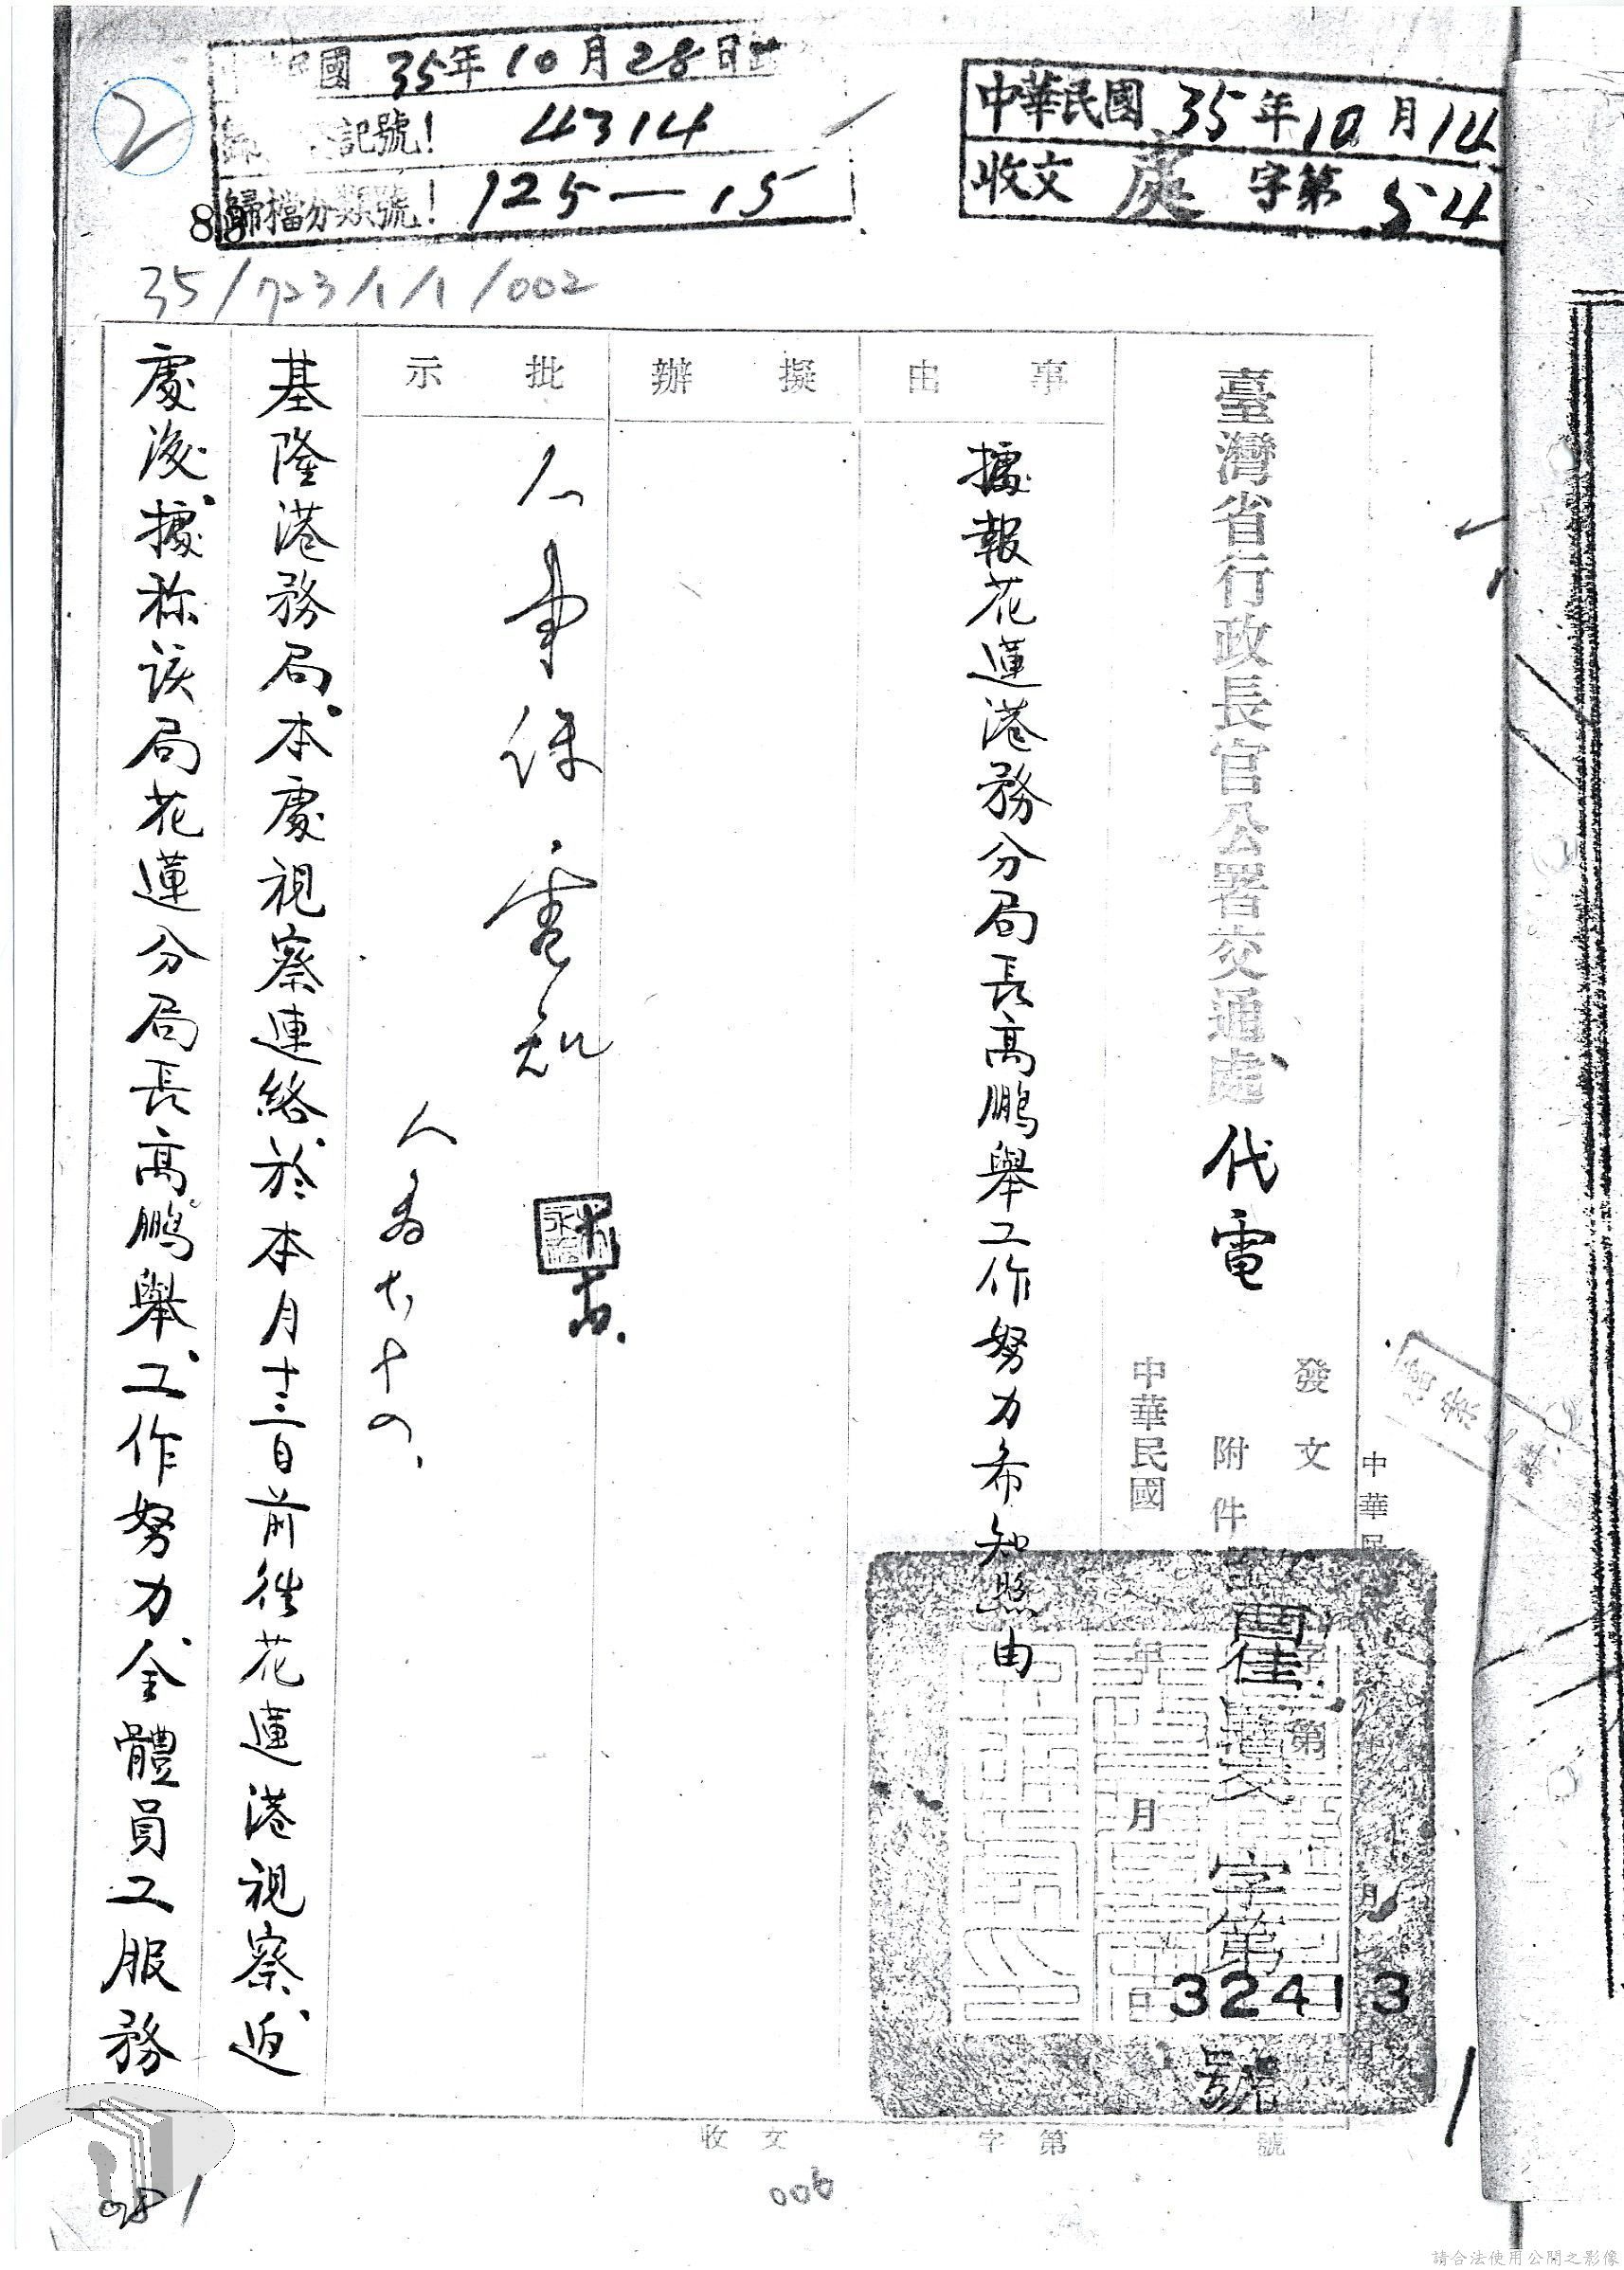 2
國 35年10月28日
記號! 4314
歸檔分類號! 125—15
中華民國 35年10月14
收文 處 字第 54
88
35/723/1/1/002
臺灣省行政長官公署交通處 代電
發文
附件
中華民國 年 月 日
字第 32413 號
事由
據報花蓮港務分局長高鵬舉工作努力希知照由
擬辦
批示
基隆港務局本處視察連絡於本月十三日前往花蓮港視察迨
處後據称該局花蓮分局長高鵬舉工作努力全體員工服務
收文 字第 號
006
081
請合法使用公開之影像